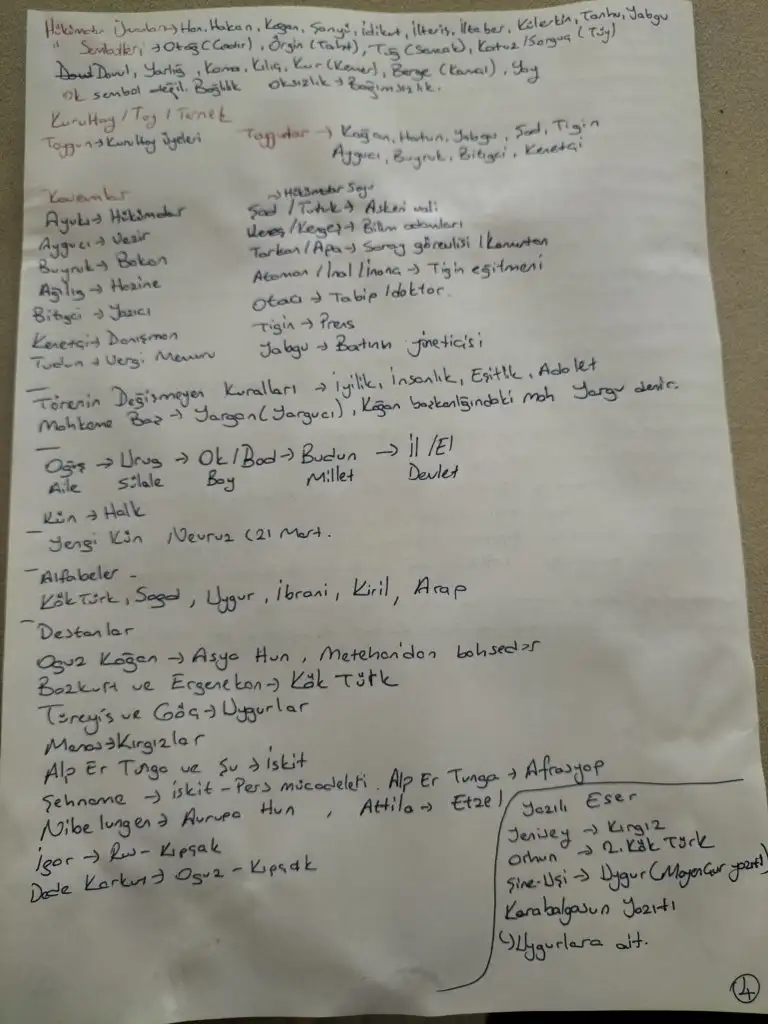 Hükümdar Ünvanları → Han, Hakan, Kağan, Şanyü, İdikut, İlteriş, İltaber, Külerkin, Tanhu, Yabgu
" Sembolleri → Otağ (Çadır), Örgin (Taht), Tuğ (Sancak), Kotuz/Sorguç (Tüy)
Davul, Yarlığ, Kama, Kılıç, Kur (Kemer), Berge (Kamçı), Yay
Ok sembol değil. Bağlılık Oksızlık → Bağımsızlık.
Kurultay / Toy / Ternek
Toygun → Kurultay üyeleri Toygunlar → Kağan, Hatun, Yabgu, Şad, Tigin
Aygucı, Buyruk, Bitigci, Kenetçi
Kavramlar → Hükümdar Soyu
Ayukı → Hükümdar Şad / Tutuk → Askeri vali
Aygucı → Vezir Keneş/Kengeş → Bilim adamları
Buyruk → Bakan Tarkan / Apa → Saray görevlisi / Komutan
Ağılığ → Hazine Ataman / İnal / İnanç → Tigin eğitmeni
Bitigci → Yazıcı Otacı → Tabip / doktor.
Kenetçi → Danışman Tigin → Prens
Tudun → Vergi Memuru Yabgu → Batının yöneticisi
- Törenin Değişmeyen Kuralları → İyilik, İnsanlık, Eşitlik, Adalet
Mahkeme Baş → Yargan (Yargucı), Kağan başkanlığındaki mah Yargu denir.
- Oğuş → Urug → Ok/Bod → Budun → İl /El
Aile Sülale Boy Millet Devlet
Kün → Halk
- Yengi Kün /Nevruz (21 Mart.
- Alfabeler -
Kök Türk, Soğd, Uygur, İbrani, Kiril, Arap
- Destanlar
Oğuz Kağan → Asya Hun, Metehan'dan bahseder
Bozkurt ve Ergenekon → Kök Türk
Türeyiş ve Göç → Uygurlar
Manas → Kırgızlar
Alp Er Tunga ve Şu → İskit
Şehname → İskit - Pers mücadeleti. Alp Er Tunga → Afrasyap
Nibelungen → Avrupa Hun, Attila → Etzel
İgor → Rus - Kıpçak
Dede Korkut → Oğuz - Kıpçak
Yazılı Eser
Yenisey → Kırgız
Orhun → 2. Kök Türk
Şine-Uşi → Uygur (Moyençur yazıtı)
Karabalgasun Yazıtı
↳ Uygurlara ait.
4